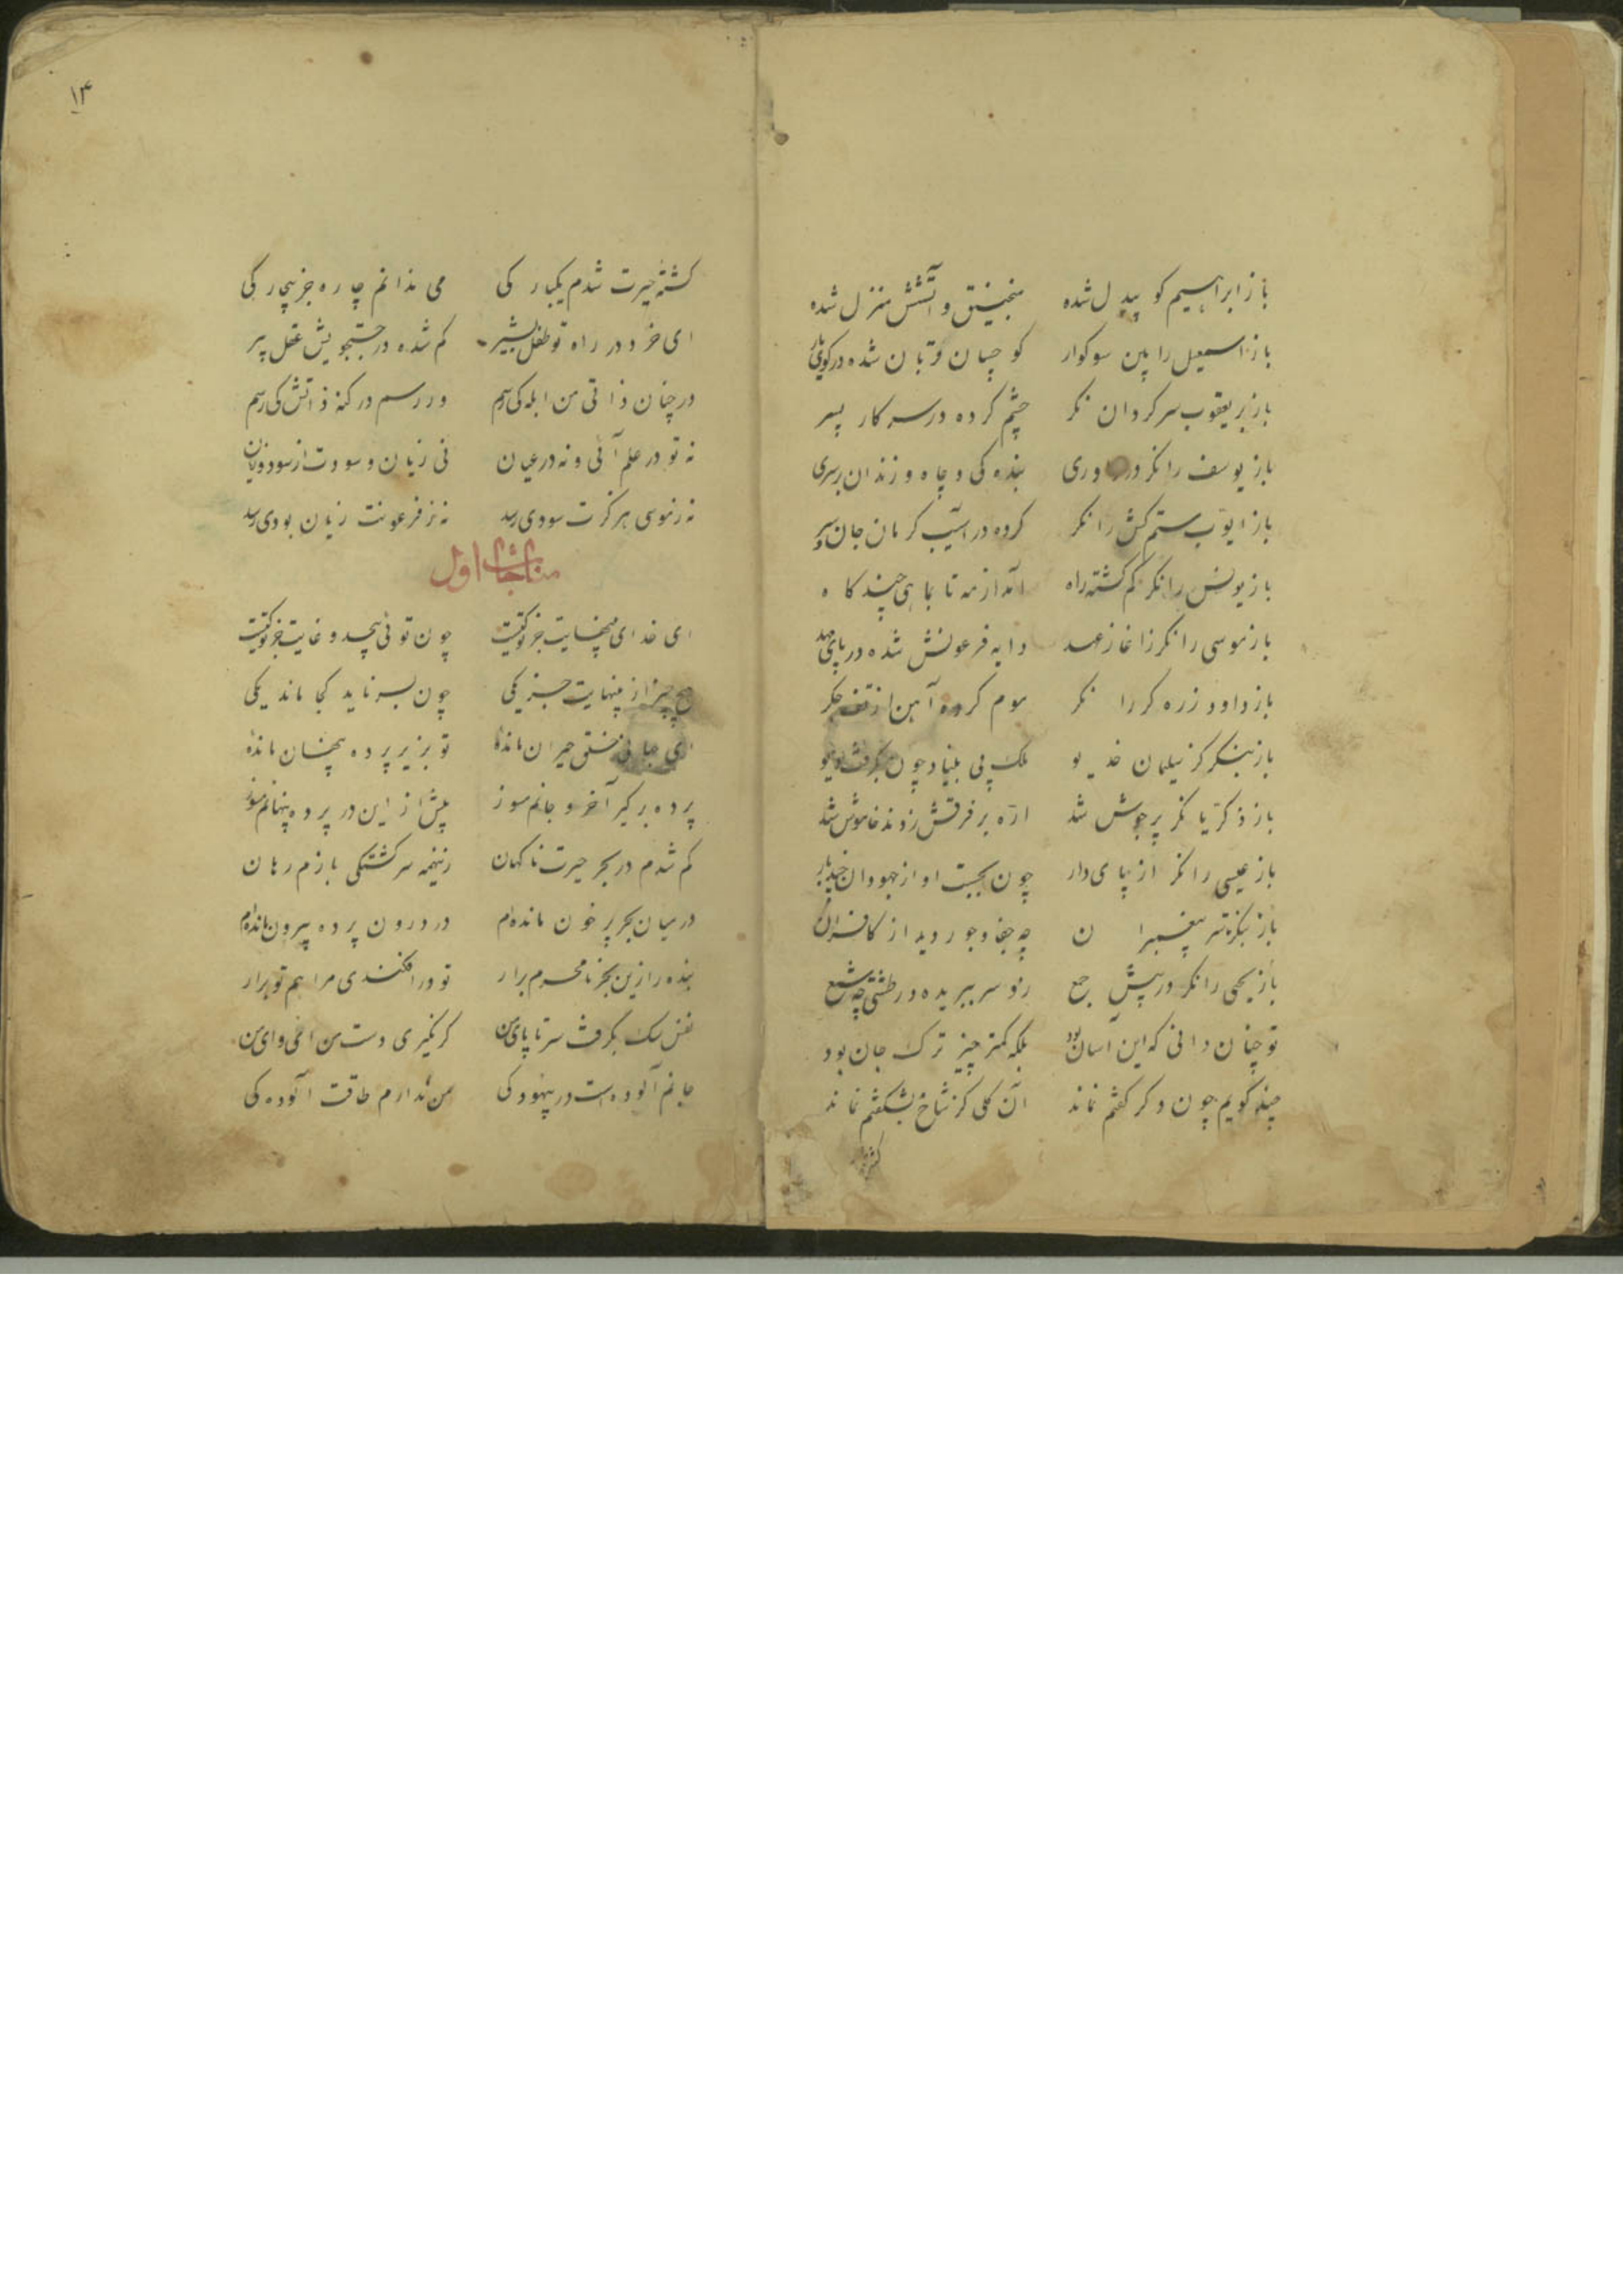 باز ابراهیم کو بیدل شده منجنیق و آتشش منزل شده
باز اسمعیل را بین سوکوار کو چسان قربان شده در کوی یار
باز بر یعقوب سرکردان نکر چشم کرده در سر کار پسر
باز یوسف را نکر در داوری بنده کی و چاه و زندان بر سری
باز ایوب ستم کش را نکر کرده در آسیب کرمان جان سپر
باز یونس را نکر کم کشته راه آمد از مه تا بماهی چند کاه
باز موسی را نکر ز آغاز عهد دایه فرعونش شده در پای مهد
باز داود زره کر را نکر موم کرده آهن از تف جکر
باز بنکر کز سلیمان خدیو ملک پی بنیاد چون بکرفت دیو
باز ذکریا نکر پر جوش شد اره بر فرقش زدند خاموش شد
باز عیسی را نکر از پای دار چون بجست او از جهودان چند بار
باز بنکر تا سر پیغمبران چه جفا و جور دید از کافران
باز یحیی را نکر در پیش جمع زو سر ببریده در طشتی چه شمع
تو چنان دانی که این آسان بود بلکه کمتر چیز ترک جان بود
چند کویم چون دکر کفتم نماند آن کلی کز شاخ بشکفتم نماند
۱۳
کشتهٔ حیرت شدم یکبار کی می ندانم چاره جز بیچار کی
ای خرد در راه تو طفل بشیر کم شده در جستجویش عقل پیر
در چنان ذاتی من ابله کی رسم ور رسم در کنه ذاتش کی رسم
نه تو در علم آئی و نه در عیان نی زیان و سودت از سود و زیان
نه ز موسی هرکزت سودی رسد نه ز فرعونت زیان بودی رسد
مناجات اول
ای خدای بینهایت جز تو کیست چون توئی بیحد و غایت جز تو کیست
هیچ چیز از بینهایت جز یکی چون بسر ناید کجا ماند یکی
ای جهانی خلق حیران مانده تو بزیر پرده پنهان مانده
پرده بر کیر آخر و جانم مسوز بیش از این در پرده پنهانم مسوز
کم شدم در بحر حیرت ناکهان زینهمه سرکشتکی بازم رهان
در میان بحر پر خون مانده‌ام در درون پرده بیرون مانده‌ام
بنده را زین بحر نامحرم برار تو در افکندی مرا هم تو برار
نفس سک بکرفت سر تا پای من کر نکیری دست من ای وای من
جانم آلوده است در بیهودکی من ندارم طاقت آلوده کی